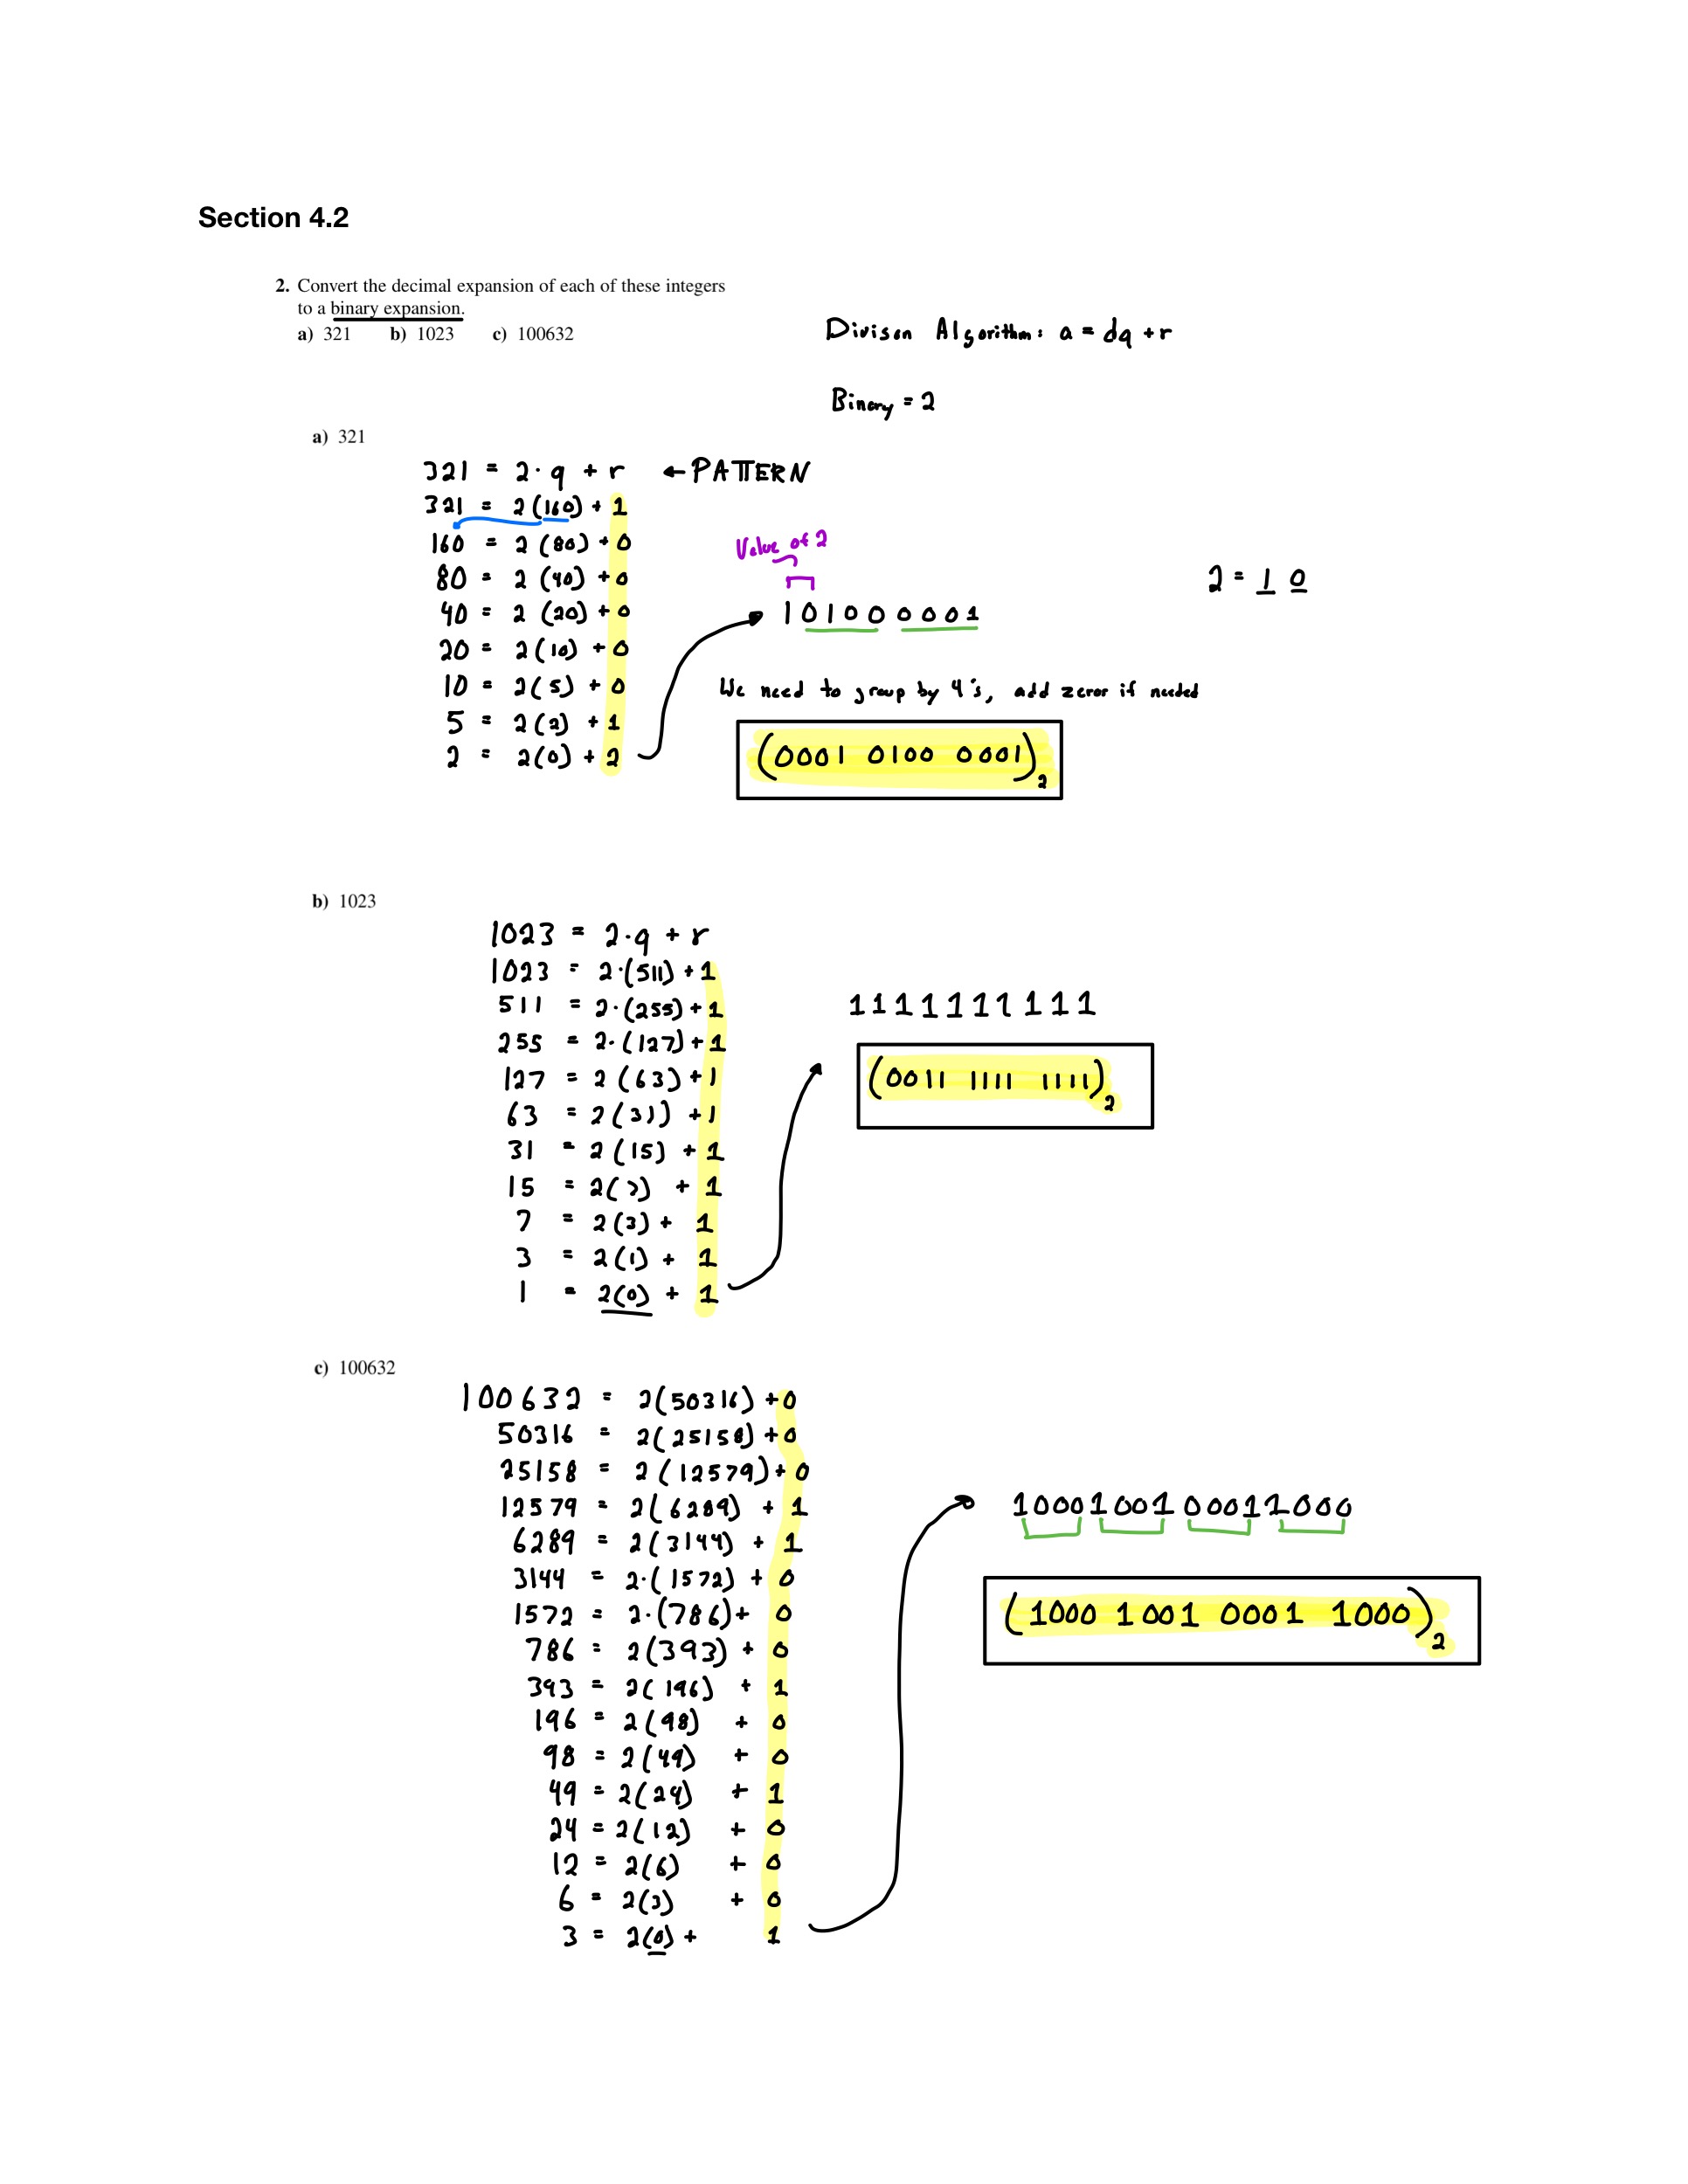 Section 4.2
2. Convert the decimal expansion of each of these integers
to a binary expansion.
a) 321 b) 1023 c) 100632
Divison Algorithm: a = dq + r
Binary = 2
a) 321
321 = 2·q + r ← PATTERN
321 = 2(160) + 1
160 = 2(80) + 0
80 = 2(40) + 0
40 = 2(20) + 0
20 = 2(10) + 0
10 = 2(5) + 0
5 = 2(2) + 1
2 = 2(0) + 2
Value of 2
101000001
2 = 1 0
We need to group by 4's, add zeros if needed
(0001 0100 0001)2
b) 1023
1023 = 2·q + r
1023 = 2·(511) + 1
511 = 2·(255) + 1
255 = 2·(127) + 1
127 = 2(63) + 1
63 = 2(31) + 1
31 = 2(15) + 1
15 = 2(7) + 1
7 = 2(3) + 1
3 = 2(1) + 1
1 = 2(0) + 1
1111111111
(0011 1111 1111)2
c) 100632
100632 = 2(50316) + 0
50316 = 2(25158) + 0
25158 = 2(12579) + 0
12579 = 2(6289) + 1
6289 = 2(3144) + 1
3144 = 2·(1572) + 0
1572 = 2·(786) + 0
786 = 2(393) + 0
393 = 2(196) + 1
196 = 2(98) + 0
98 = 2(49) + 0
49 = 2(24) + 1
24 = 2(12) + 0
12 = 2(6) + 0
6 = 2(3) + 0
3 = 2(0) + 1
1000100100011000
(1000 1001 0001 1000)2